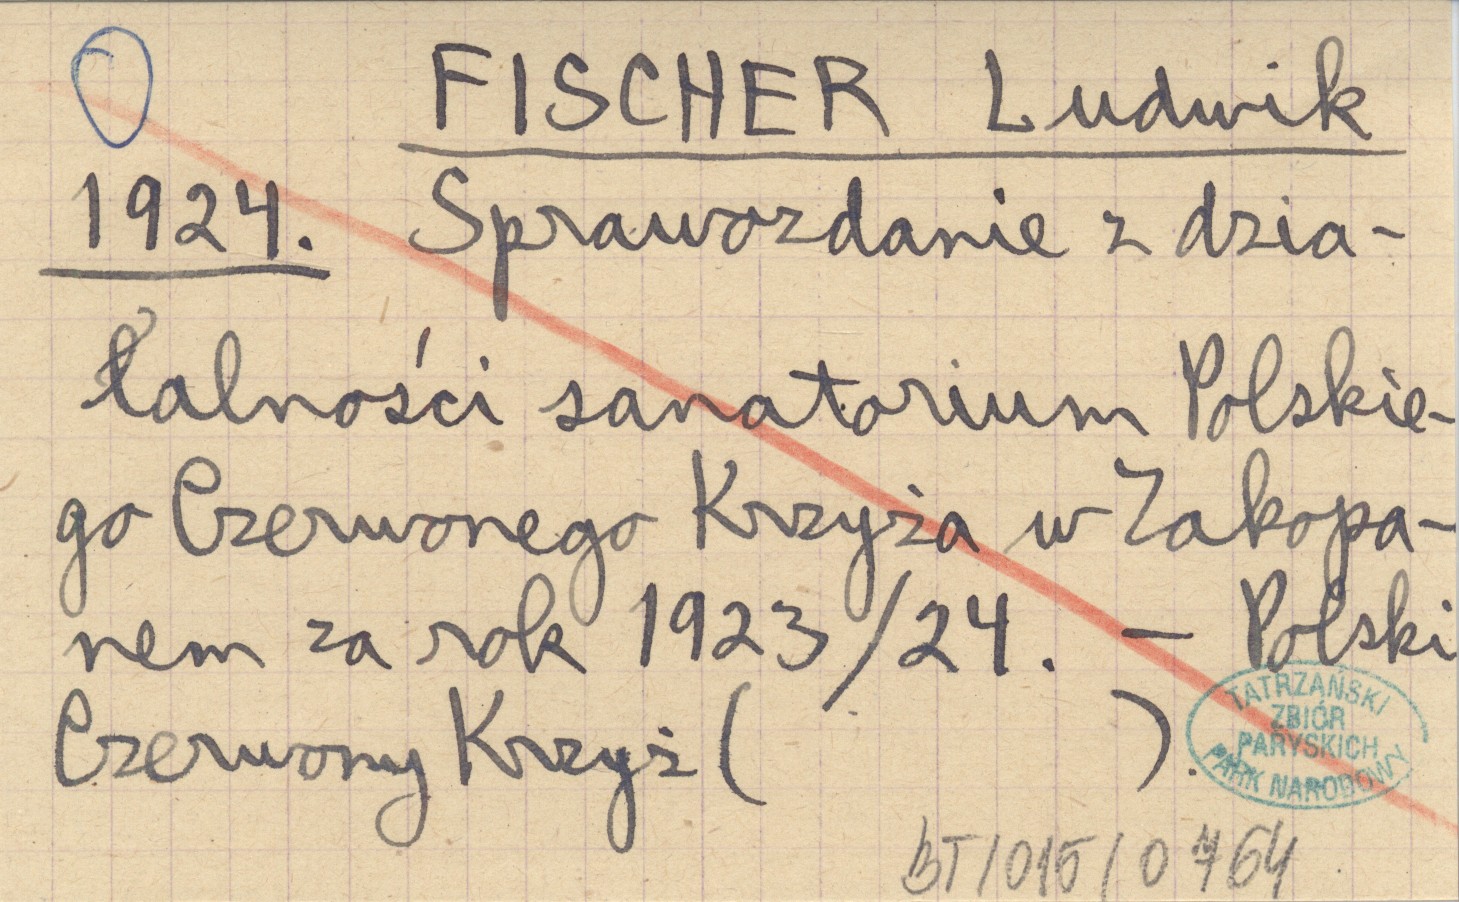 FISCHER Ludwik
1924. Sprawozdanie z dzia-
łalności sanatorium Polskie-
go Czerwonego Krzyża w Zakopa-
nem za rok 1923/24. — Polski
Czerwony Krzyż ( ).
TATRZAŃSKI
ZBIÓR
PARYSKICH
PARK NARODOWY
BT/015/0764